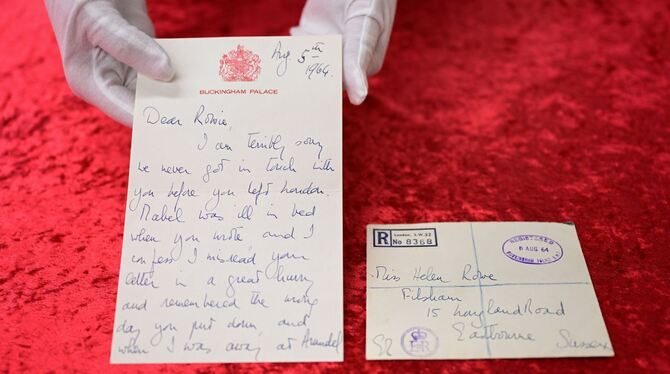 Aug. 5th
1964.
BUCKINGHAM PALACE
Dear Rowie,
I am terribly sorry
we never got in touch with
you before you left London.
Mabel was ill in bed
when you wrote and I
confess I misread your
letter in a great hurry
and remembered the wrong
day you put down, and
when I was away at Arundel
R London, S.W.22
No 8368
REGISTERED
6 AUG 64
Miss Helen Rowe
Filsham
15 Road
Eastbourne Sussex
E II R